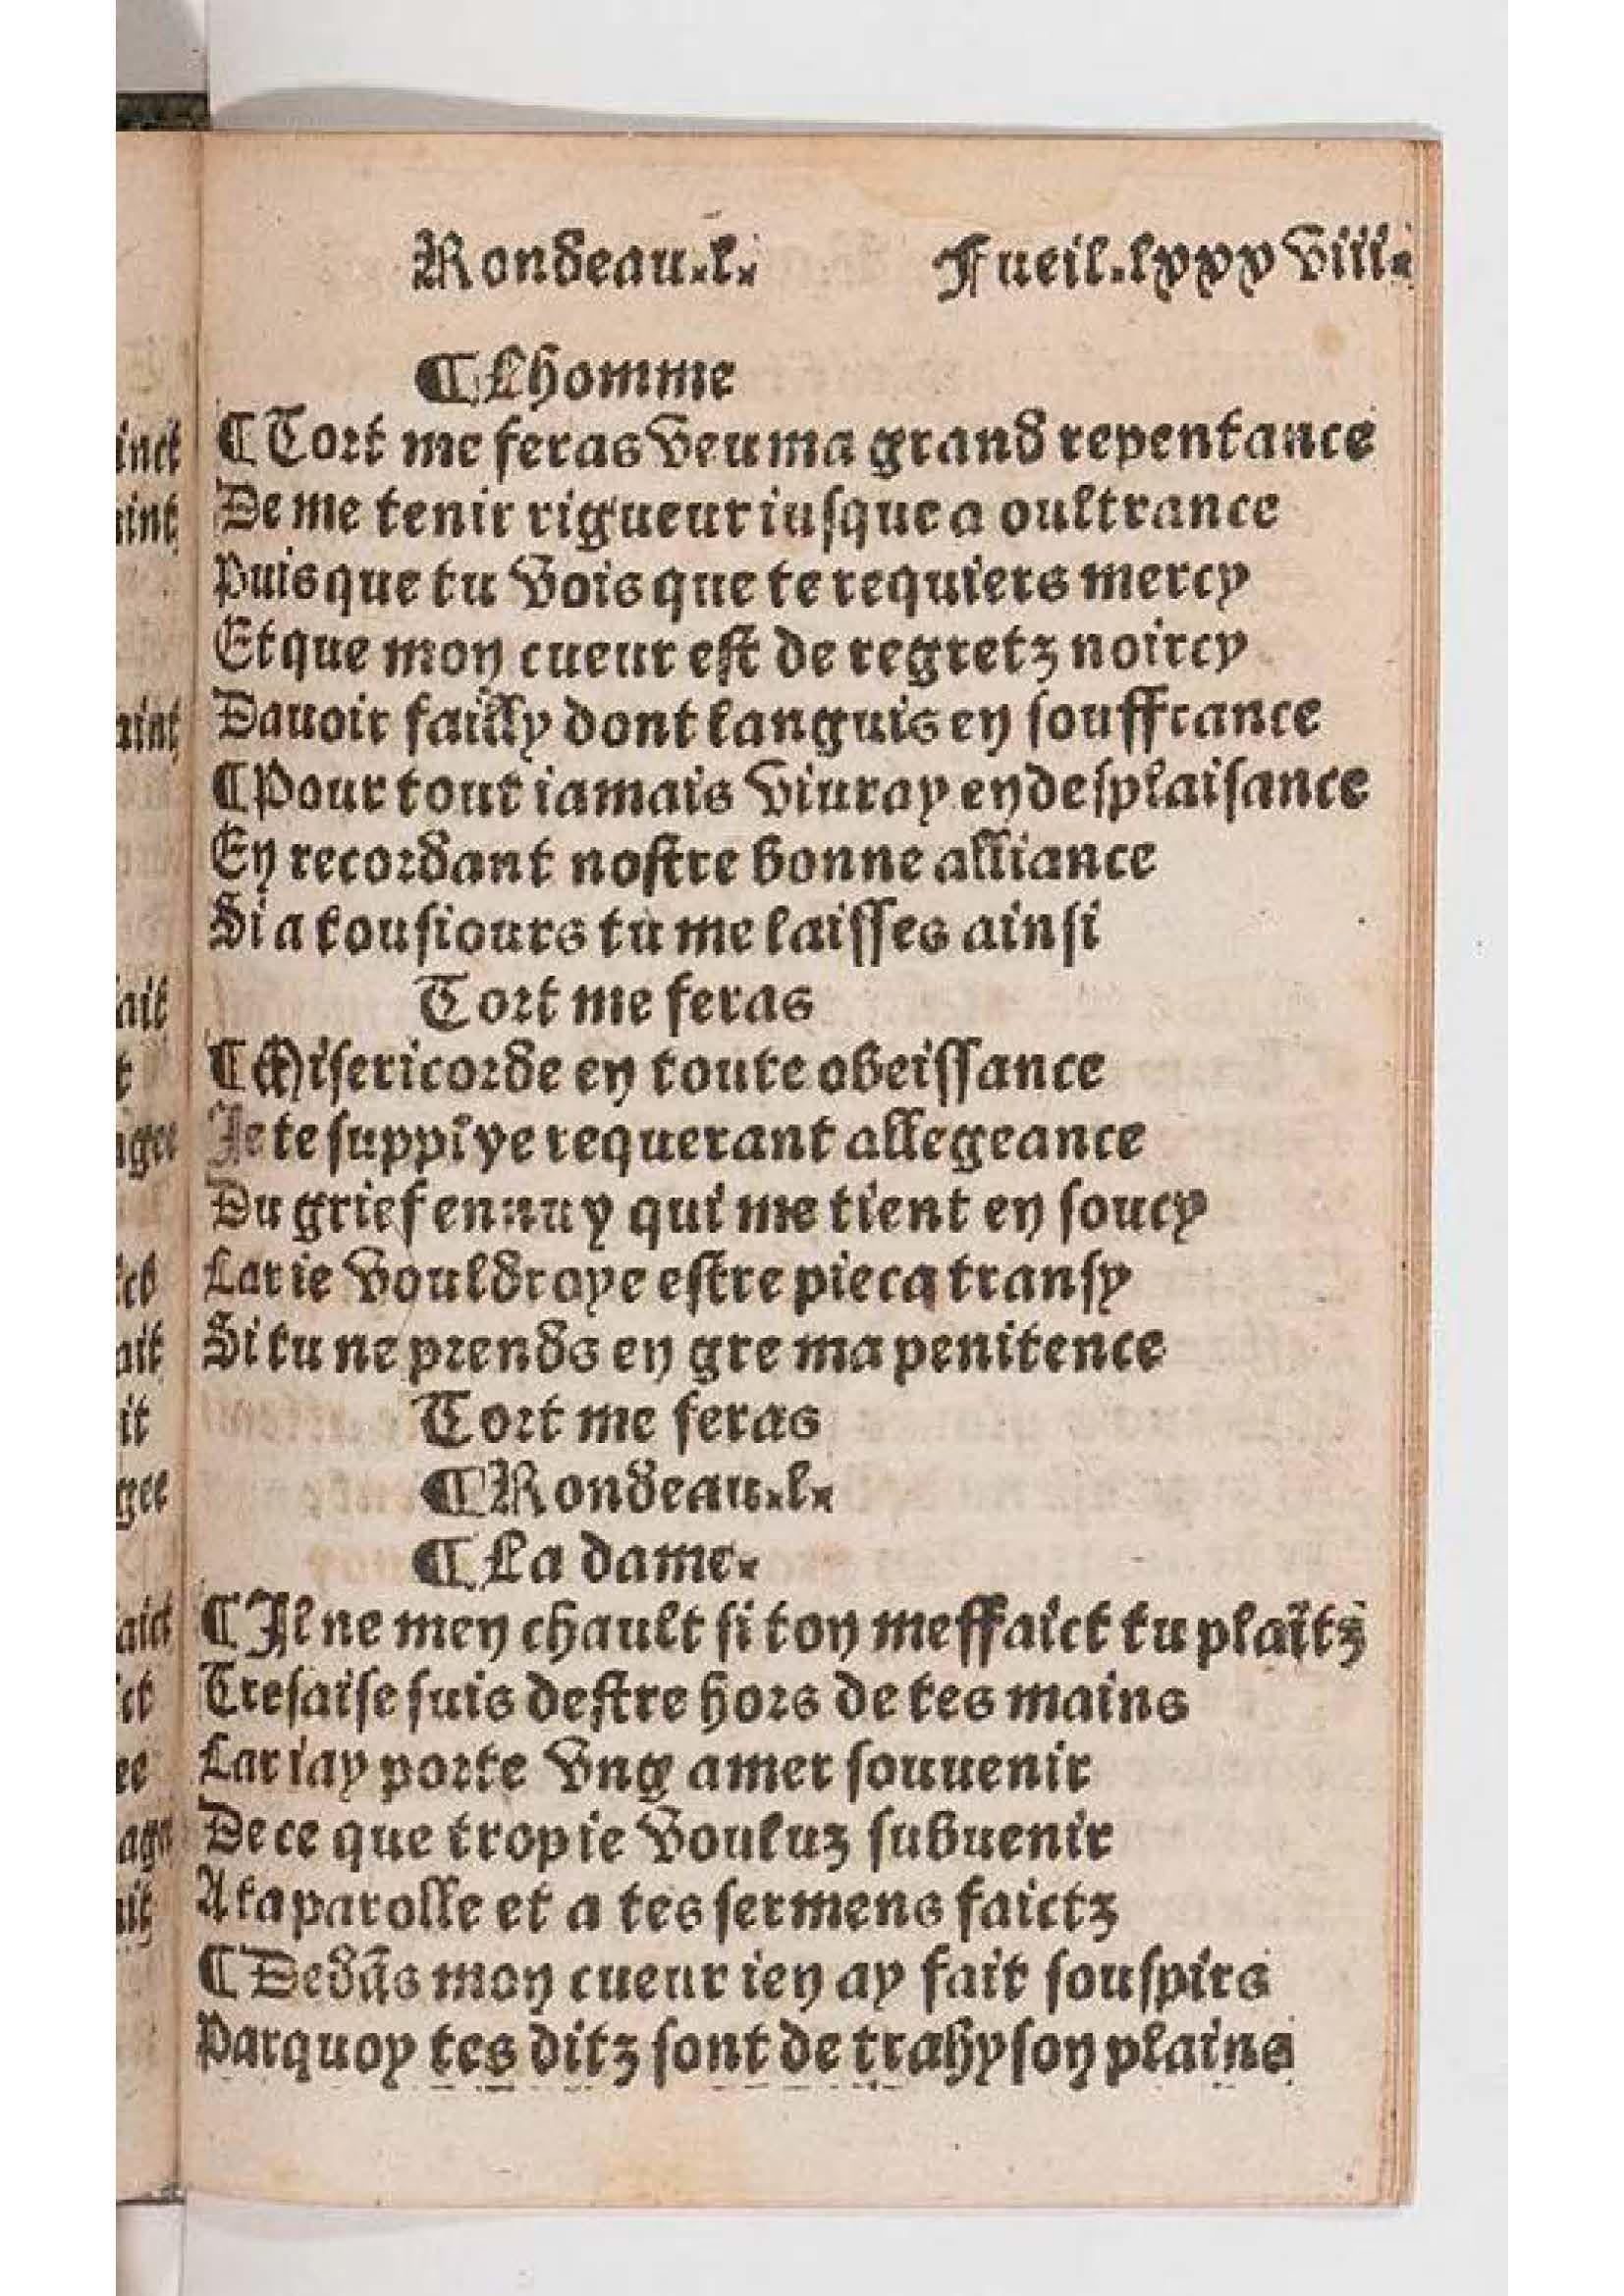 Rondeau.l. Fueil.lxxxviii.
¶Lhomme
¶Tort me feras veu ma grand repentance
De me tenir rigueur iusque a oultrance
Puis que tu vois que te requiers mercy
Et que mon cueur est de regretz noircy
Dauoir failly dont languis en souffrance
¶Pour tout iamais viuray en desplaisance
En recordant nostre bonne alliance
Si a tousiours tu me laisses ainsi
Tort me feras
¶Misericorde en toute obeissance
Ie te supplye requerant allegeance
Du grief ennuy qui me tient en soucy
Car ie vouldroye estre pieca transy
Si tu ne prends en gre ma penitence
Tort me feras
¶Rondeau.l.
¶La dame.
¶Il ne men chault si ton meffaict tu plaītz
Tresaise suis destre hors de tes mains
Car iay porte vng amer souuenir
De ce que trop ie vouluz subuenir
A ta parolle et a tes sermens faictz
¶Dedās mon cueur ien ay fait souspirs
Parquoy tes ditz sont de trahyson plains
inct
aint
aint
ait
t
agee
ait
it
gee
aict
ict
ee
agee
ait